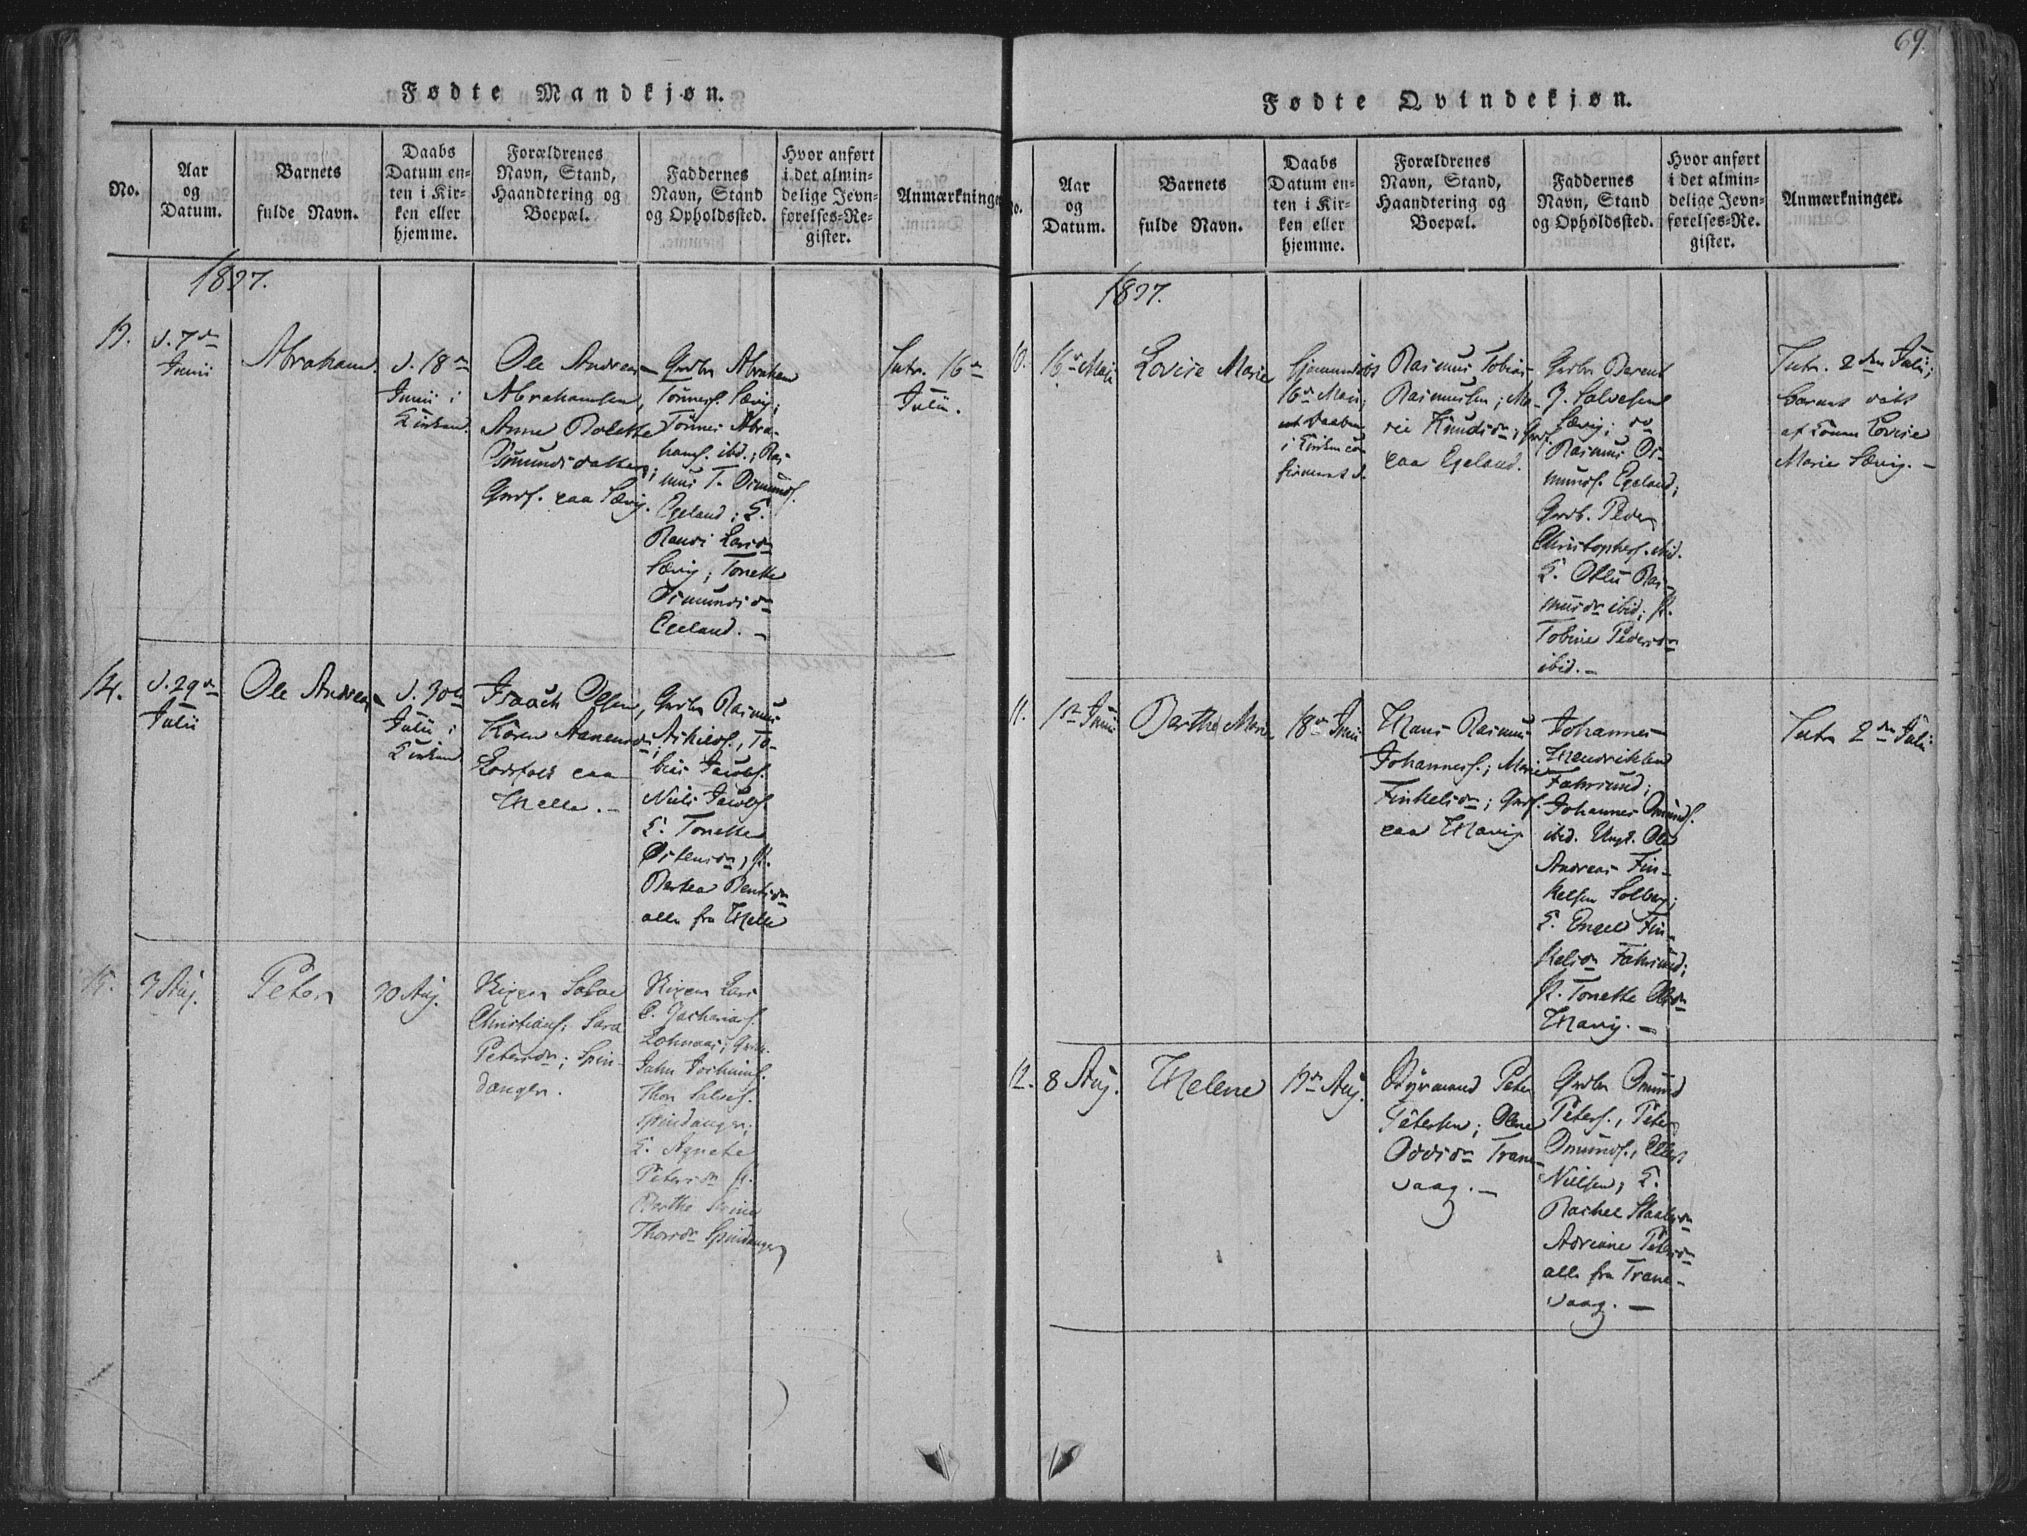 69.
Fødte Mandkjøn.
No.
Aar
og
Datum.
Barnets
fulde Navn.
Daabs
Datum en-
ten i Kir-
ken eller
hjemme.
Forældrenes
Navn, Stand,
Haandtering og
Boepæl.
Faddernes
Navn, Stand
og Opholdssted.
Hvor anført
i det almin-
delige Jevn-
førelses-Re-
gister.
Anmærkninger
1827.
13.
d. 7de
Junii
Abraham
d. 18de
Junii i
Kirken
Ole Andreas
Abrahamsen,
Anne Bolette
Osmundsdatter;
Grdf. paa Sævig.
Grdbr Abraham
Tönnesf. Sævig;
Tönnes Abra-
hamf. ibd.; Ras-
mus T. Osmundf.
Egeland; K.
Randi Larsdr
Sævig; Tonette
Osmundsdr
Egeland. –
Intr. 16de
Julii.
14.
d. 29de
Julii
Ole Andreas
d. 30te
Julii i
Kirken
Isaach Olsen,
Karen Aanensdr;
Lodsfolk paa
Helle. –
Grdbr Rasmus
Askildf., To-
bias Jacobf.
Niels Jacobf.
K. Tonette
Ostensdr, P.
Bertea Bentsdr
alle fra Helle
15.
3 Aug.
Peter
30 Aug.
Salve
Christianf; Sara
Petersdr; Spin-
danger.
Lars
C. Zachariasf.
Jahn Jochumf.
Thor Salvef.
Spindanger;
K. Agnete
Petersdr P.
Berthe
Thorsdr Spindanger
Fødte Qvindekjøn.
No.
Aar
og
Datum.
Barnets
fulde Navn.
Daabs
Datum en-
ten i Kir-
ken eller
hjemme.
Forældrenes
Navn, Stand,
Haandtering og
Boepæl.
Faddernes
Navn, Stand
og Opholdssted.
Hvor anført
i det almin-
delige Jevn-
førelses-Re-
gister.
Anmærkninger.
1827.
10.
16de Maii
Lovise Marie
Hjemmedöbt
16de Maii;
i Kirken con-
firmeret d.
Rasmus Tobias
Rasmussen; Ma-
rie Knudsdr; Grdf.
paa Egeland.
Grdbr Berent
J. Salvesen
Sævig; do
Rasmus Os-
mundf. Egeland;
Grdb. Peder
Christopherf. ibid.
K. Ras-
musdr ibid; P.
Tobine Pedersdr
ibid. –
Intr. 2den Julii;
Barnet döbt
af Konen Lovise
Marie Sævig. –
11.
1ste Junii
Berthe Marie
18de Junii
Hans Rasmus
Johannesf.; Marie
Finkelsdr; Grdf.
paa Havig
Johannes
Hendriksen
Fahrsund;
Johannes Omundf.
ibid. Ungk. Ole
Andreas Fin-
kelsen Solberg;
K. Engel Fin-
kelsdr Fahrsund;
P. Tonette Olsdr
Havig. –
Intr 2den Julii
12.
8 Aug.
Helene
13de Aug.
Styrmand Peter
Petersen; Olene
Oddsdr Trane-
vaag. –
Grdbr Omund
Petersf., Peter
Omundf.,
Nielsen; K.
Rachel
Adriane Petersdr
alle fra Trane-
vaag. –